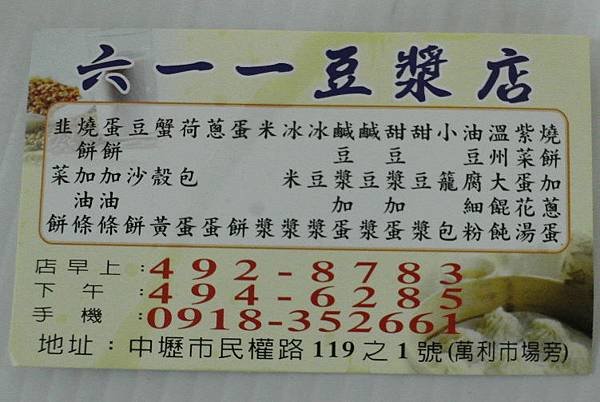 六一一豆漿店
燒餅加蔥蛋
紫菜蛋花湯
溫州大餛飩
油豆腐細粉
小籠包
甜豆漿
甜豆漿加蛋
鹹豆漿
鹹豆漿加蛋
冰豆漿
冰米漿
米漿
蛋餅
蔥蛋
荷包蛋
蟹殼黃
豆沙餅
蛋餅加油條
燒餅加油條
韭菜餅
店早上:492-8783
下午:494-6285
手機:0918-352661
地址:中壢市民權路119之1號(萬利市場旁)